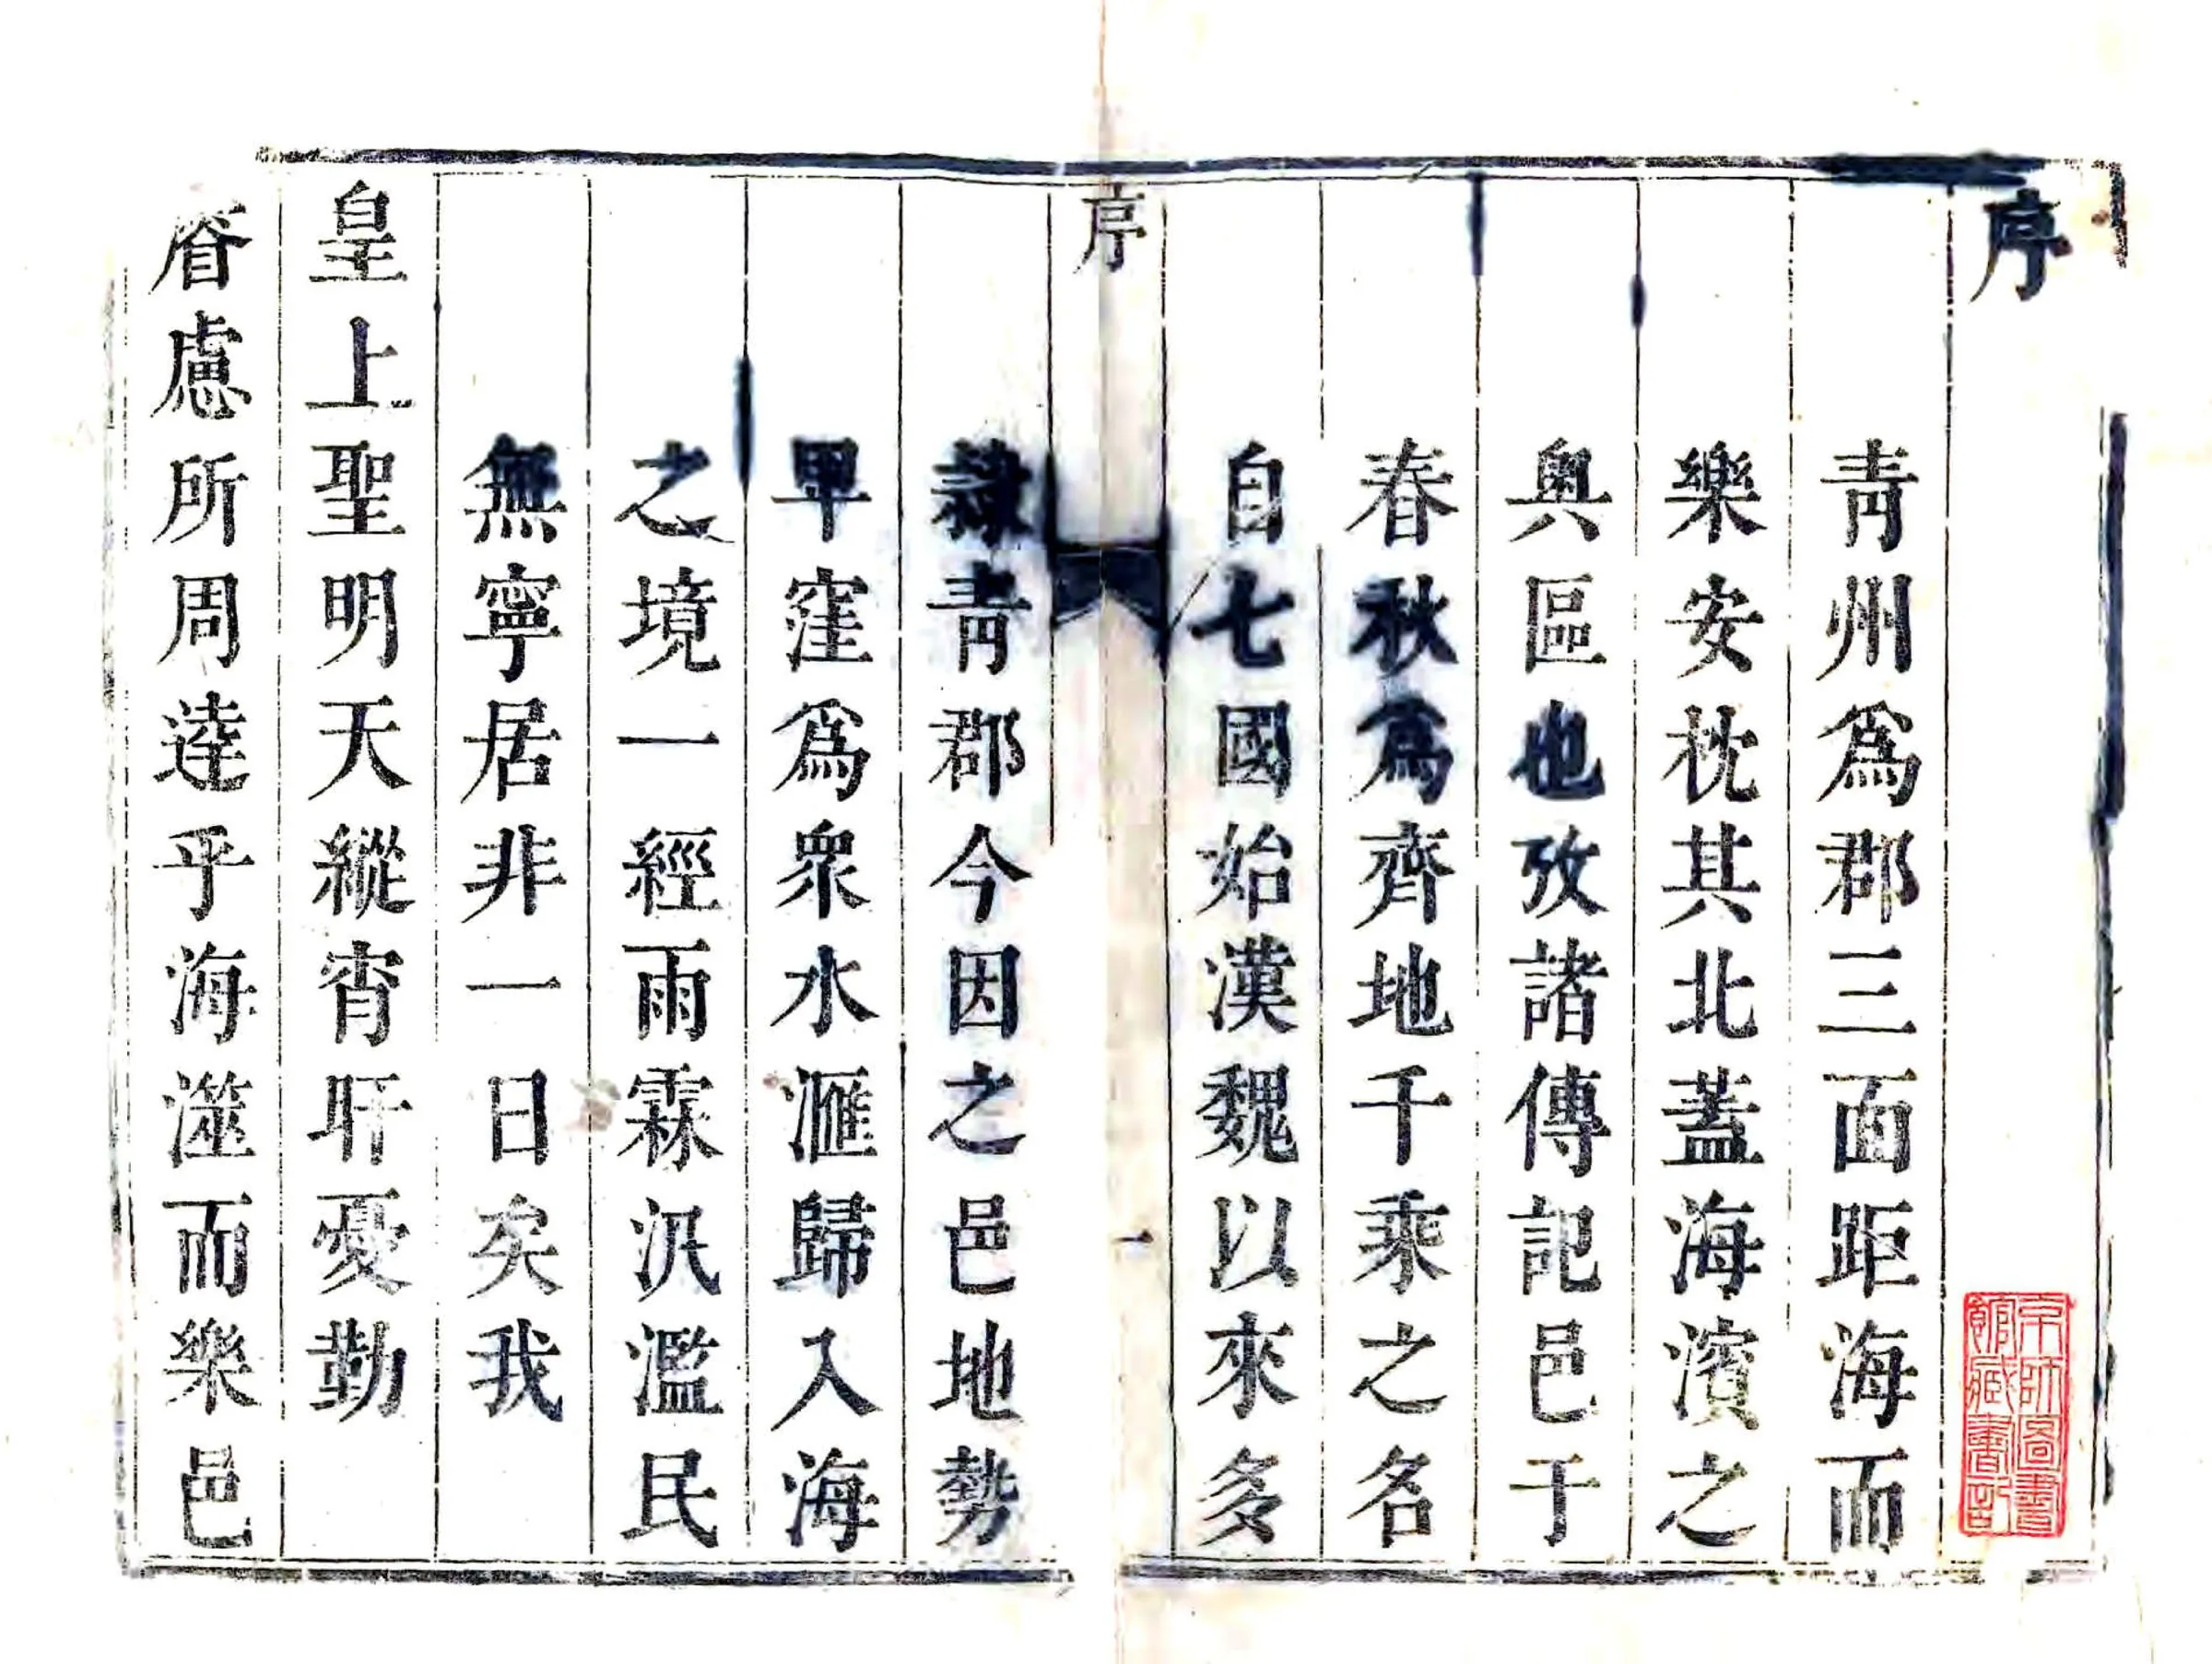 序
青州爲郡三面距海而
樂安枕其北蓋海濱之
奥區也攷諸傳記邑于
春秋爲齊地千乘之名
自七國始漢魏以來多
序
一
隷青郡今因之邑地勢
卑窪爲衆水滙歸入海
之境一經雨霖汎濫民
無寧居非一日矣我
皇上聖明天縱宵旰憂勤
睿慮所周逹乎海澨而樂邑
京師圖書
館藏書記